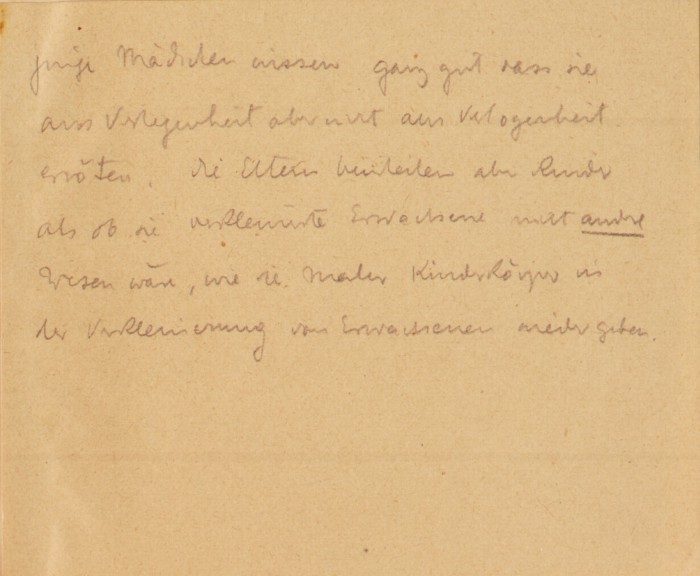 junge Mädchen wissen ganz gut dass sie
aus Verlegenheit aber nicht aus Verlogenheit
erröten. Die Eltern beurteilen aber Kinder
als ob sie verkleinerte Erwachsene nicht andre
Wesen wären, wie die Maler Kinderkörper in
der Verkleinerung von Erwachsenen wiedergeben.